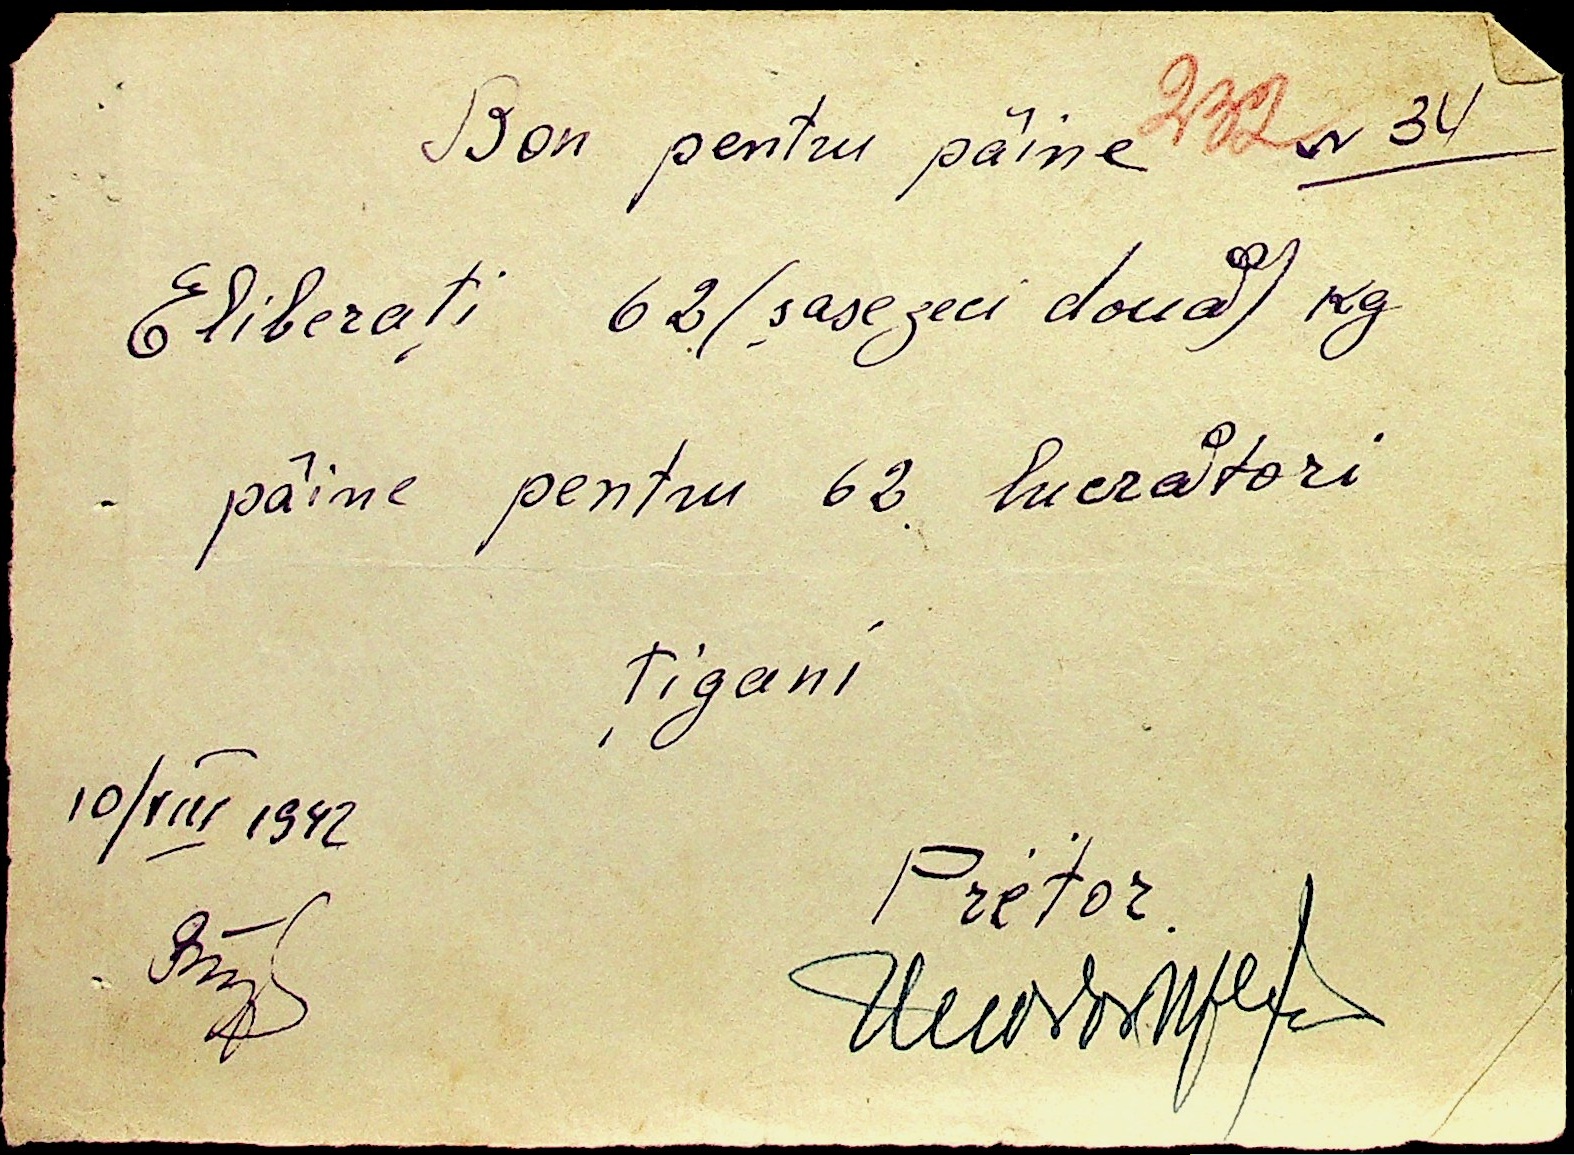 Bon pentru pâine 232 nr 34
Eliberați 62 (șasezeci două) kg
pâine pentru 62 lucrători
țigani
10/VIII 1942
Pretor.